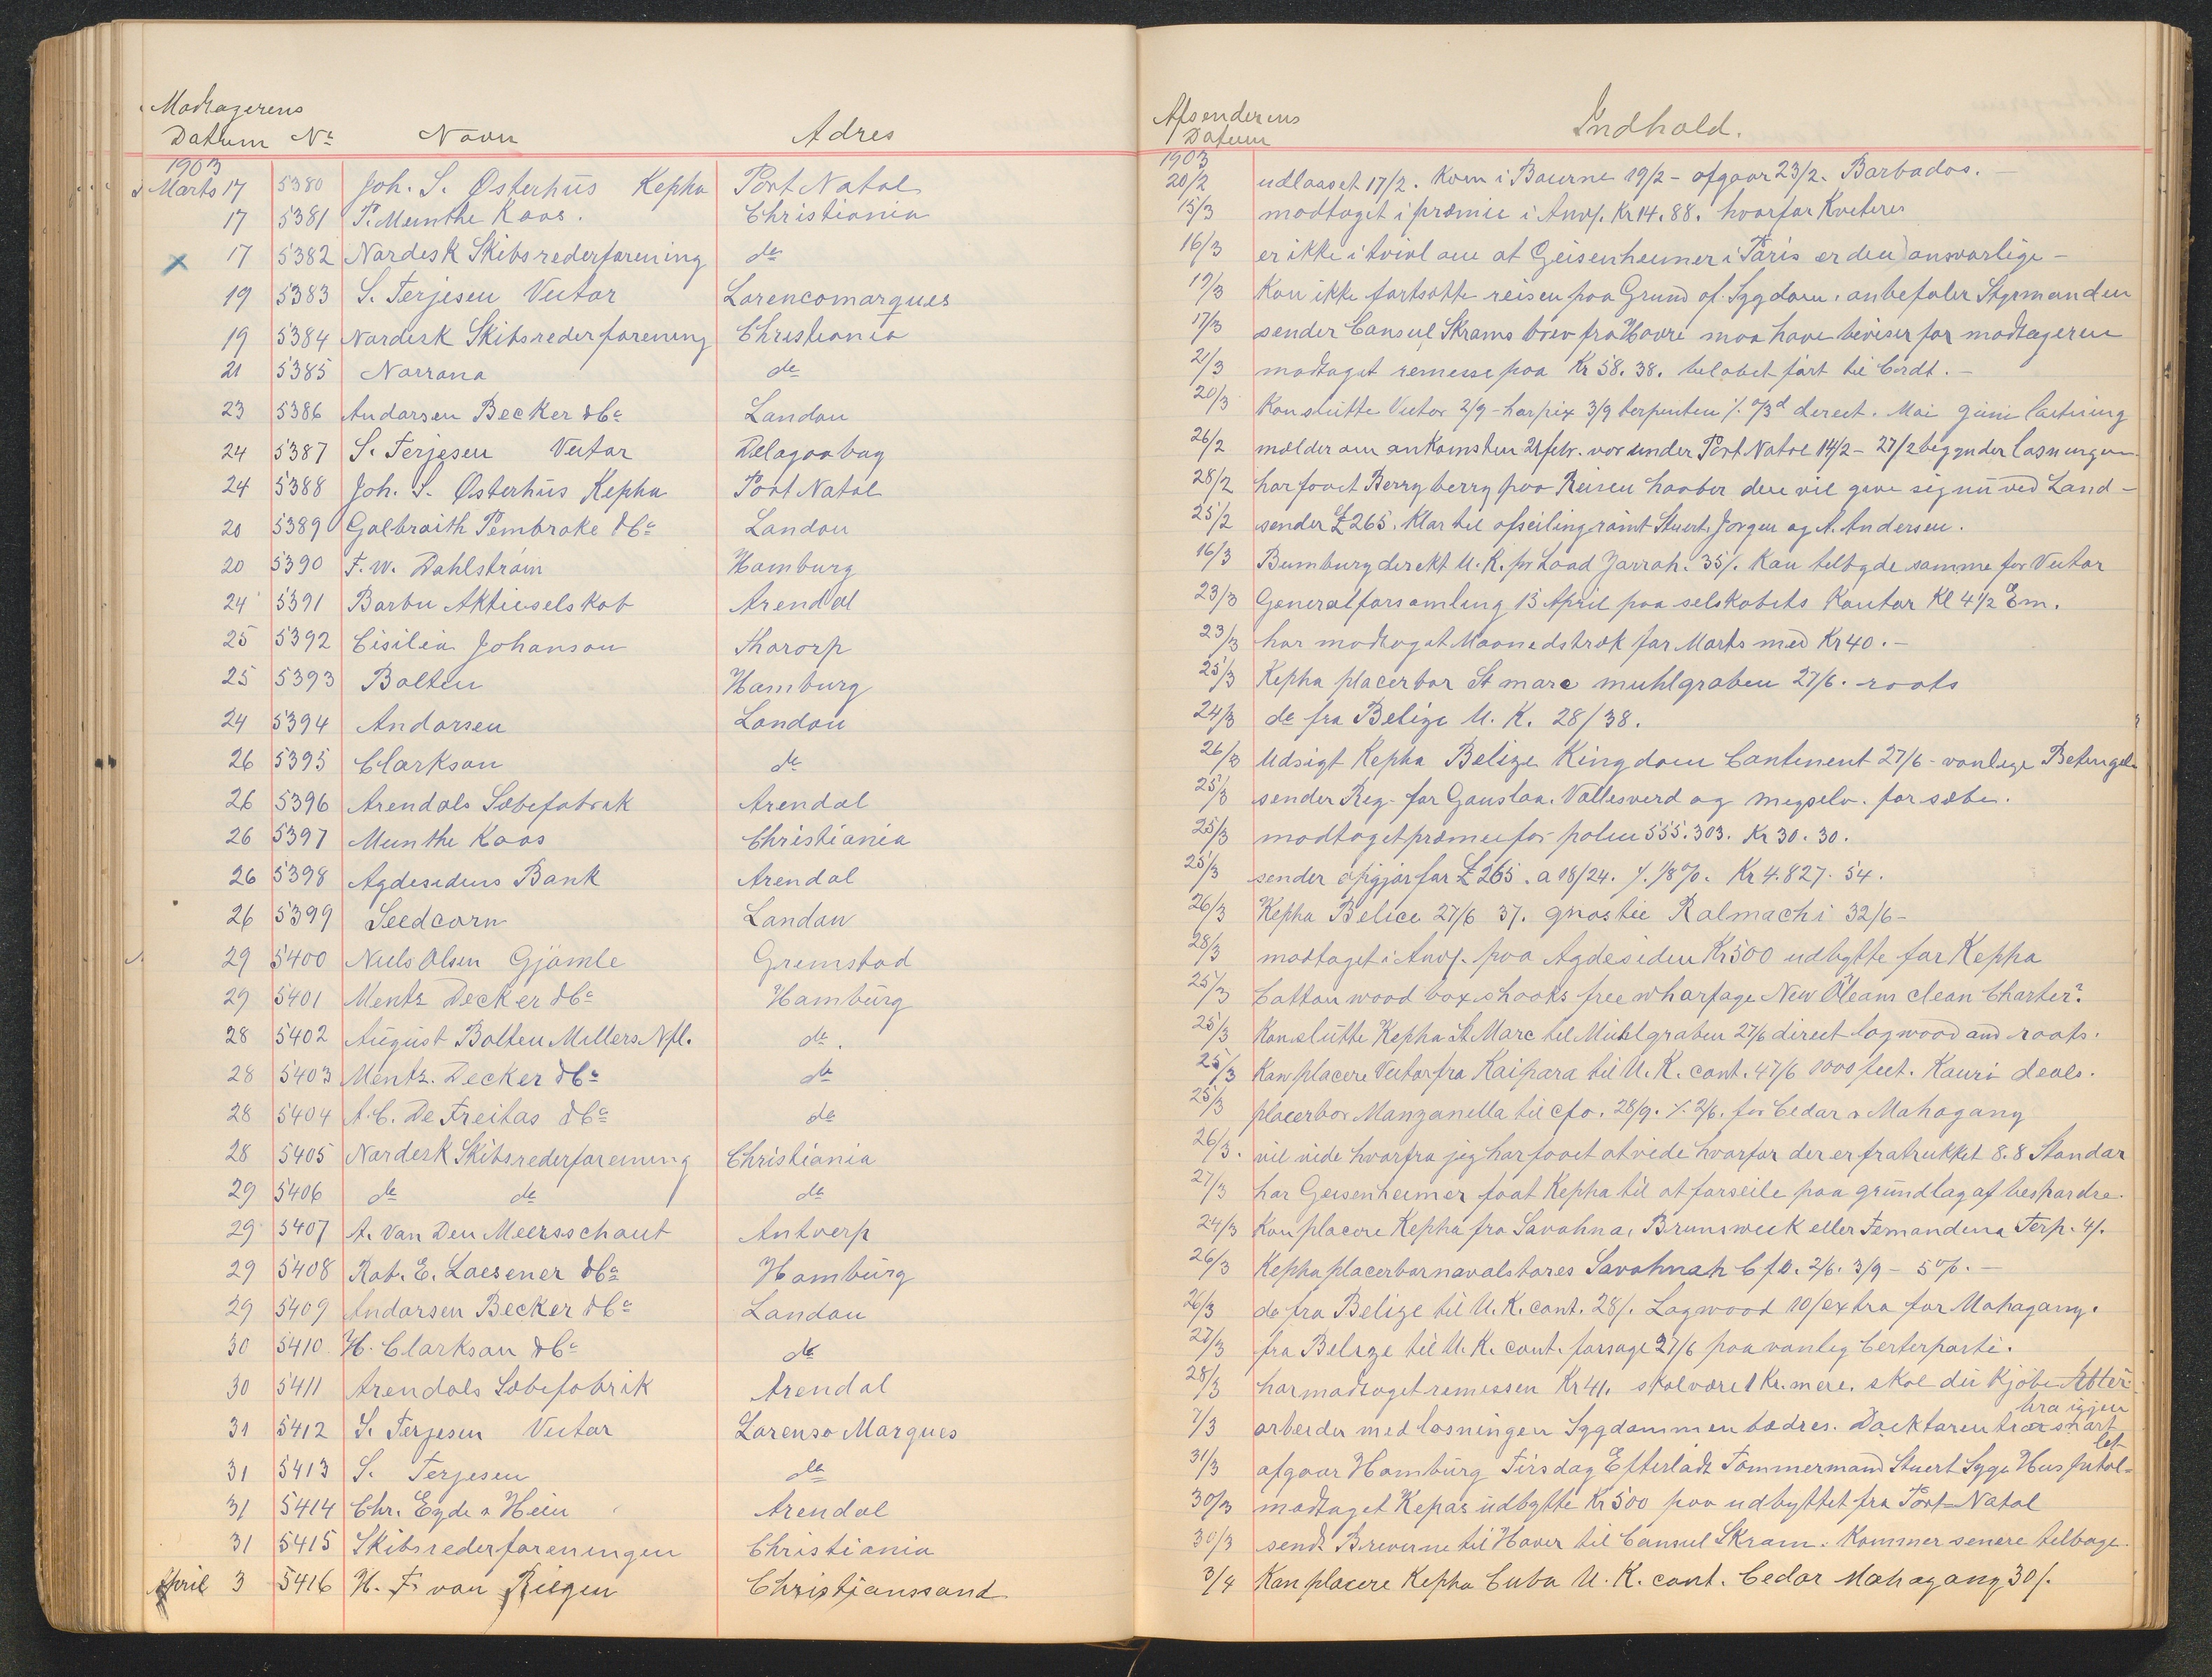 Modtagerens
Datum No Navn Adres
1903
Marts 17 5380 Joh. S. Østerhüs Kepha Port Natal
17 5381 P. Munthe Kaas. Christiania
x 17 5382 Nordisk Skibsrederforening do
19 5383 S. Terjesen Vectar Lorencomarques
19 5384 Nordisk Skibsrederforening Christiania
21 5385 Norrøna do
23 5386 Andorsen Becker & Co London
24 5387 S. Terjesen Vectar Delagoabay
24 5388 Joh. S. Østerhüs Kepha Port Natal
20 5389 Galbraith Pembroke & Co London
20 5390 F. W. Dahlström Hamburg
24 5391 Barbu Aktieselskab Arendal
25 5392 Cisilia Johanson Thororp
25 5393 Bolten Hamburg
24 5394 Andorsen London
26 5395 Clarkson do
26 5396 Arendals Sæbefabrik Arendal
26 5397 Munthe Kaas Christiania
26 5398 Agdesidens Bank Arendal
26 5399 Seedcorn London
29 5400 Niels Olsen Gjömle Grimstad
29 5401 Mentz Decker & Co Hambürg
28 5402 Aügüst Bolten Millers Nfl. do.
28 5403 Mentz. Decker & Co do
28 5404 A. C. De Freitas & Co do
28 5405 Nordisk Skibsrederforening Christiania
29 5406 do do do
29 5407 A. Van Den Meersschaut Antverp
29 5408 Rob. E. Loesener & Co Hambürg
29 5409 Andorsen Becker & Co London
30 5410. H. Clarkson & Co do
30 5411 Arendals Sæbefabrik Arendal
31 5412 S. Terjesen Vectar Lorenso Marques
31 5413 S. Terjesen do
31 5414 Chr. Eyde & Hein Arendal
31 5415 Skibsrederforeningen Christiania
April 3 5416 H. F. van Riegen Christianssand
Afsenderens
Datum Indhold.
1903
20/2 udlosset 17/2. Kom i Baierne 19/2 - afgaar 23/2. Barbados. -
15/3 modtaget i præmie i Anvf. Kr 14.88. hvorfor Kviterer
16/3 er ikke i tvivl om at Geisenheimer i Paris er den ansvarlige -
19/3 Kan ikke fortsætte reisen paa Grund af Sygdom. anbefaler Styrmanden
17/3 sender Consul Skrams brev fra Havre maa have beviser for modtageren
21/3 modtaget remesse paa Kr 58.38. beløbet ført til Crdt. -
20/3 Kan slütte Vectar 2/9 - harpix 3/9 terpentin %. 0/3d derect. Mai Juni lastning
26/2 mælder om ankomsten 21 febr. var under Port Natal 14/2 - 27/2 begynder losningen
28/2 har faaet Berryberry paa Reisen haaber den vil give sig nü ved Land -
25/2 sender £ 265. Klar til afseiling rømt Stuert, Jorgen og A. Andersen.
16/3 Bumbury direkt U. K. pr Load Jarrah. 35/. Kan tilbyde samme for Vectar
23/3 Generalforsamling 15 April paa selskabets Kontor Kl 4 1/2 Em.
23/3 har modtaget Maanedstræk for Marts med Kr 40. -
25/3 Kepha placerbar St marc muhlgraben 27/6. roots
24/3 do fra Belize U. K. 28/38.
26/3 Udsigt Kepha Belize Kingdom Continent 27/6 - vanlige Betingels
25/3 sender Reg. for Gauslaa. Vallesverd og migselv. for sæbe.
25/3 modtaget præmie for police 555.303. Kr 30.30.
25/3 sender opgjør for £ 265. a 18/24. %. 1/8 %. Kr 4.827.54.
26/3 Kepha Belice 27/6 37. gnostie Ralmachi 32/6 -
28/3 modtaget i Anvf. paa Agdesiden Kr 500 udbytte for Kepha
25/3 Cotton wood box shooks free wharfage New Oleans clean Charter?
25/3 Kan slütte Kepha St Marc til Mühlgraben 27/6 direct logwood and roots.
25/3 Kan placere Vectar fra Kaipara til U. K. cont. 47/6 1000 feet. Kauri deals.
25/3 placerbar Manzanella til cfo. 28/9. %. 2/6. for Cedar & Mahogany
26/3. vil vide hvorfra jeg har faaet at vide hvorfor der er fratrukket 8.8 Standar
27/3 har Geisenheimer faat Kepha til at forseile paa gründlag af
24/3 Kan placere Kepha fra Savahna, Brunsweek eller Fernandina Terp. 4/.
26/3 Kepha placerbar navalstores Savahnah Cfo. 2/6. 3/9 - 5%. -
26/3 do fra Belize til U. K. cont. 28/. Logwood 10/ extra for Mahogany.
27/3 fra Belize til U. K. cont. forsøge 27/6 paa vanlig Certerparti.
28/3 har modtaget remessen Kr 41. skal være 1 Kr. mere. skal dü Kjöbe Aktier
7/3 arbeider med losningen Sygdommen bedres. Dacktoren tror snart bra igjen
31/3 afgaar Hambürg Tirsdag Efterladt Tømmermand Stuert Syge Hus
30/3 modtaget Kepas üdbytte Kr 500 paa udbyttet fra Port-Natal
30/3 sendt Breverne til Haver til Consul Skram. Kommer senere tilbage.
3/4 Kan placere Kepha Cuba U. K. cont. Cedar Mahogany 30/.